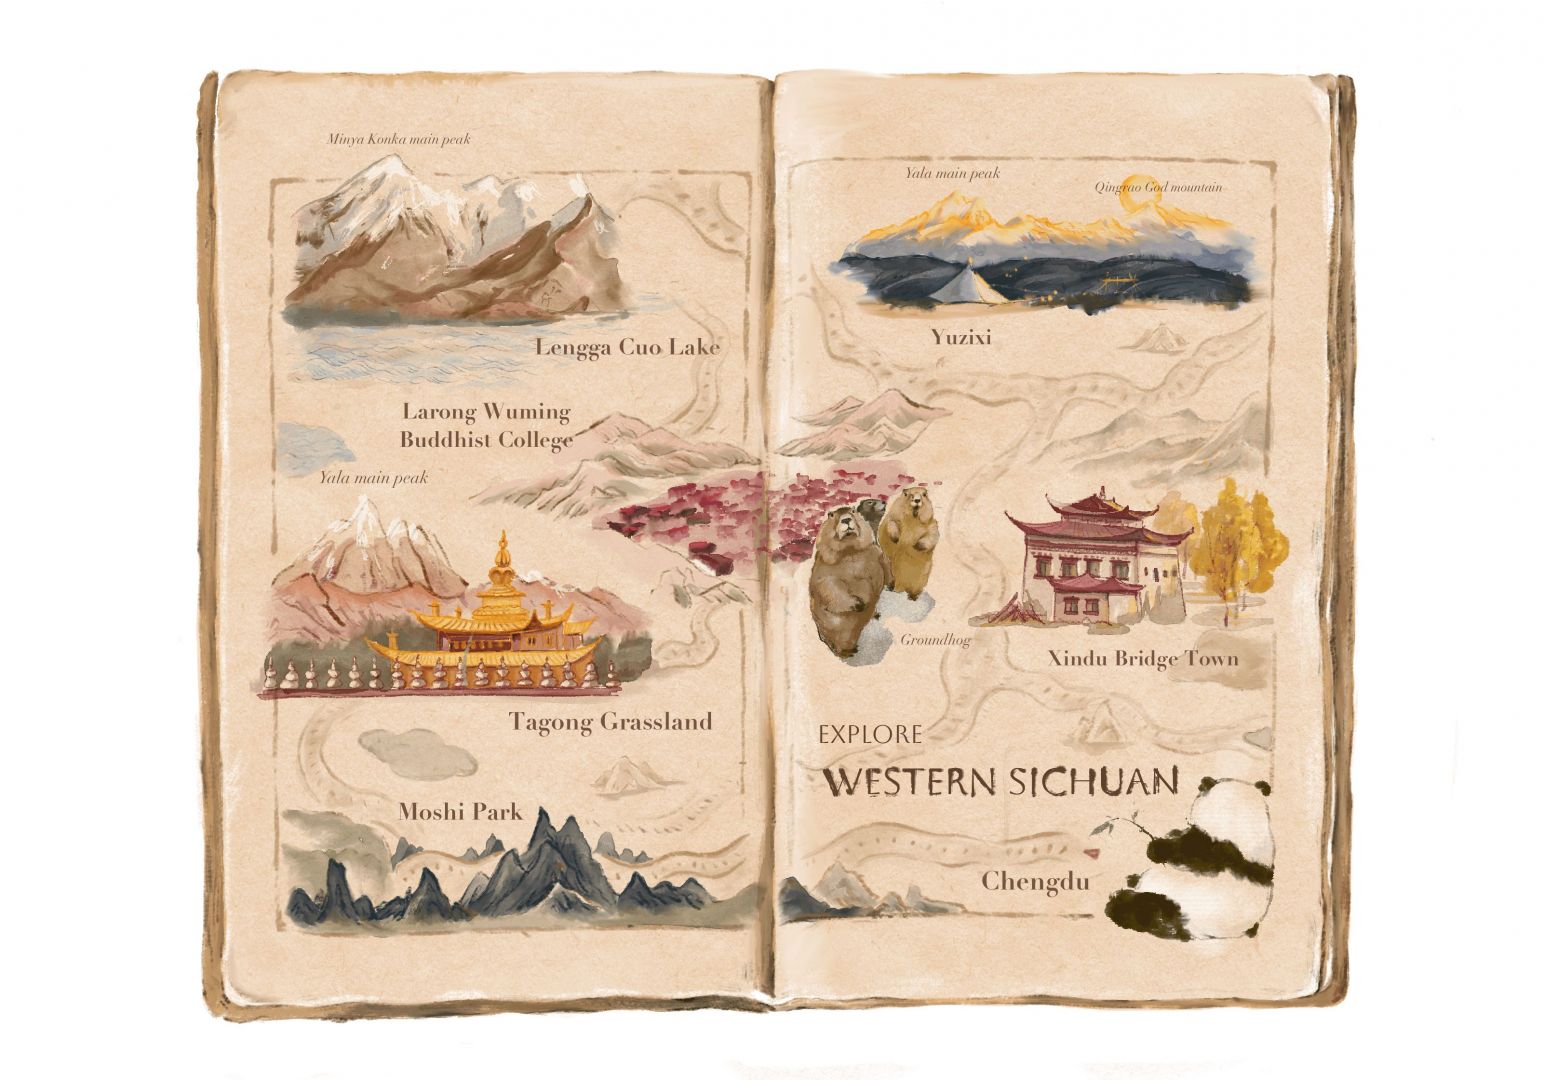 Minya Konka main peak
Lengga Cuo Lake
Larong Wuming
Buddhist College
Yala main peak
Tagong Grassland
Moshi Park
Yala main peak
Qingrao God mountain
Yuzixi
Groundhog
Xindu Bridge Town
EXPLORE
WESTERN SICHUAN
Chengdu